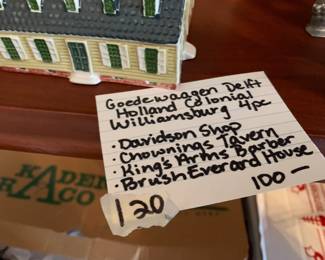 Goedewaagen Delft
Holland Colonial
Williamsburg 4pc
• Davidson Shop
• Chownings Tavern
• King's Arms Barber
• Brush Everard House
100 —
120
KADE
RACO